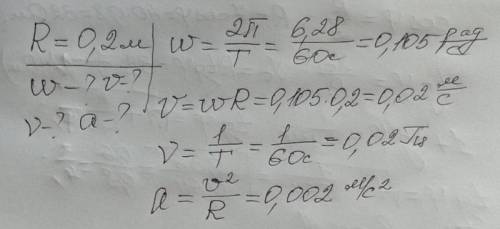 R = 0,2 м
w - ? v - ?
ν - ? a - ?
w = 2π/T = 6,28/60с = 0,105 рад/с
v = wR = 0,105·0,2 = 0,02 м/с
ν = 1/T = 1/60с = 0,02 Гц
a = v²/R = 0,002 м/с²